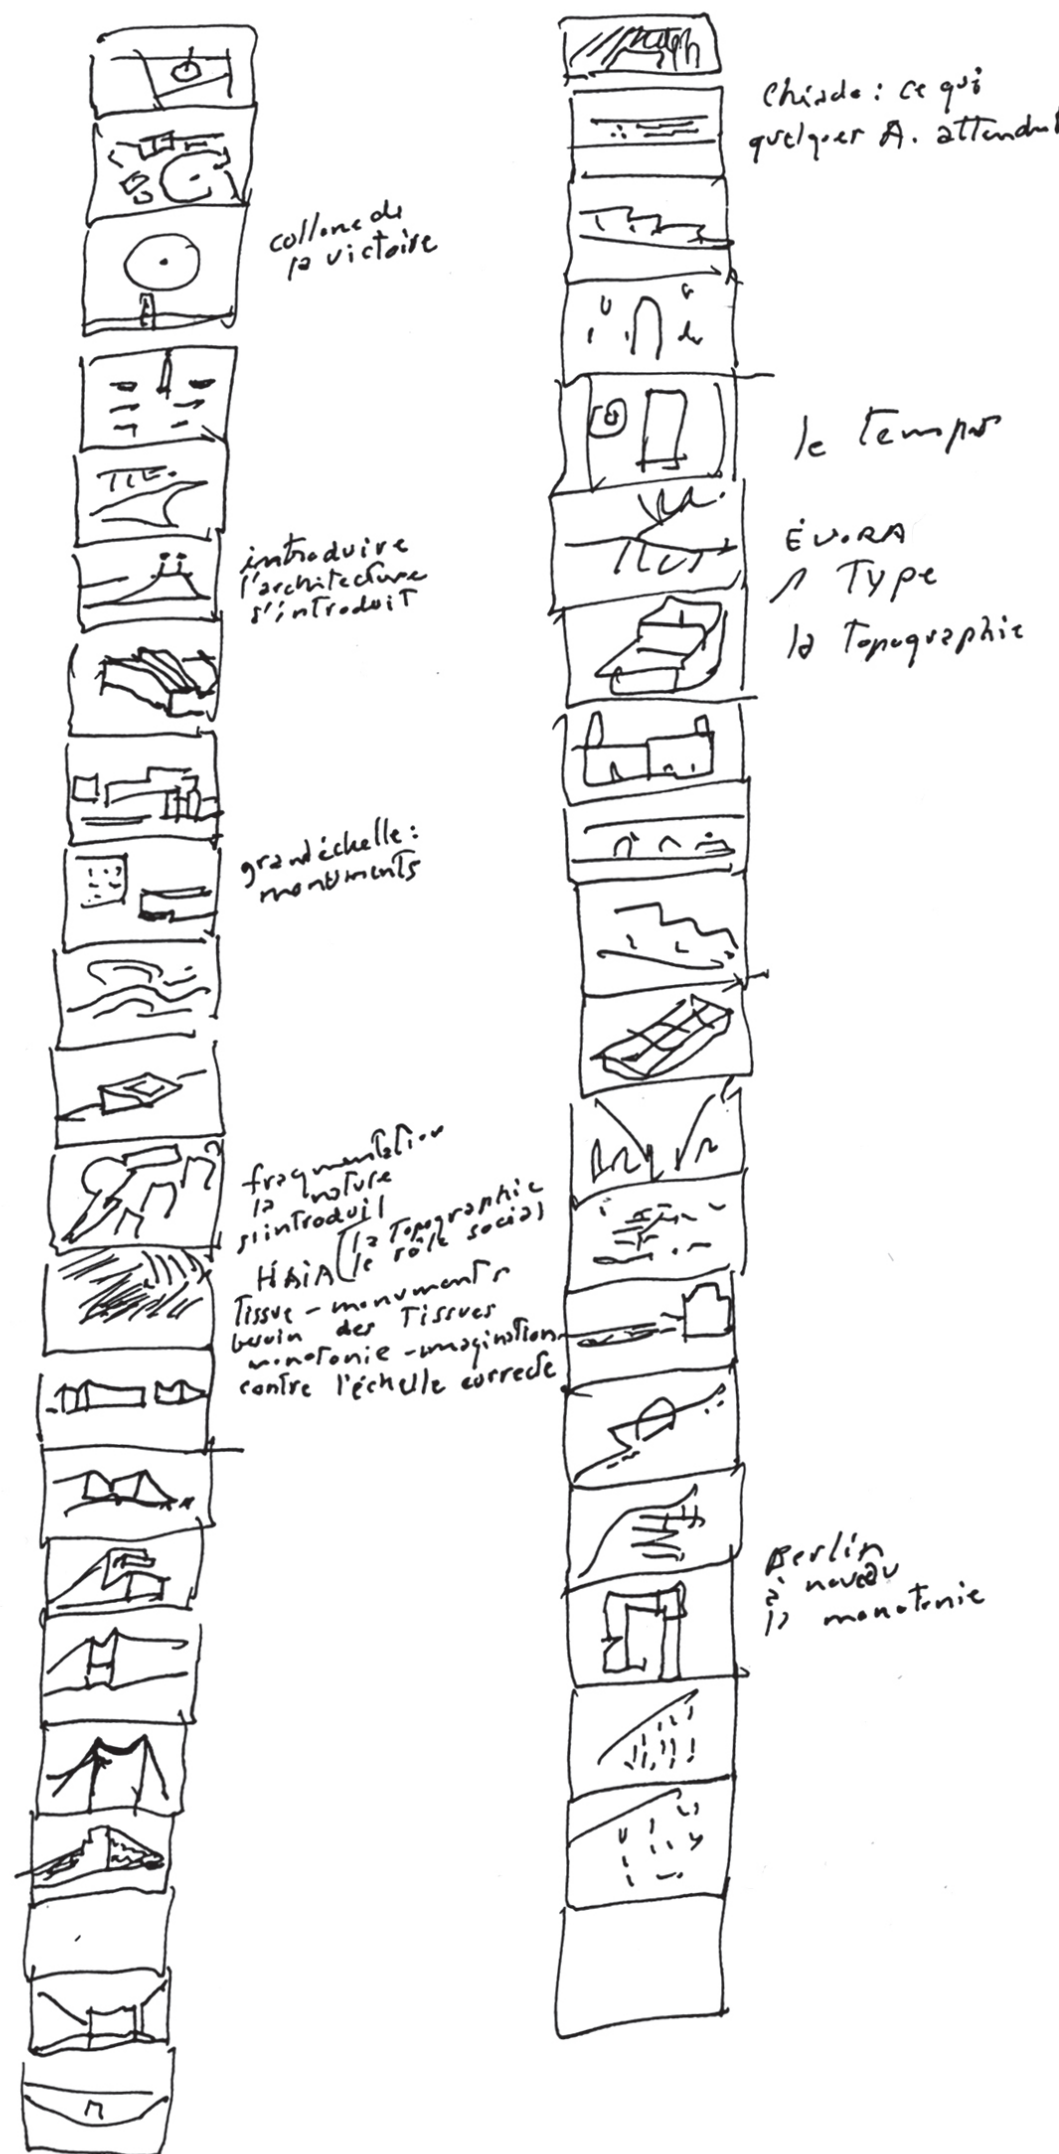 collone de
la victoire
introduire
l'architecture
s'introduit
grand échelle:
monuments
fragmentation
la nature
s'introduit
HAIA (la Topographie
le rôle social
Tissue - monuments
besoin des Tissues
monotonie - imagination
contre l'échelle correcte
Chiado: ce qui
quelques A. attendent
le temps
ÉVORA
1 Type
la Topographie
Berlin
à nouveau
la monotonie